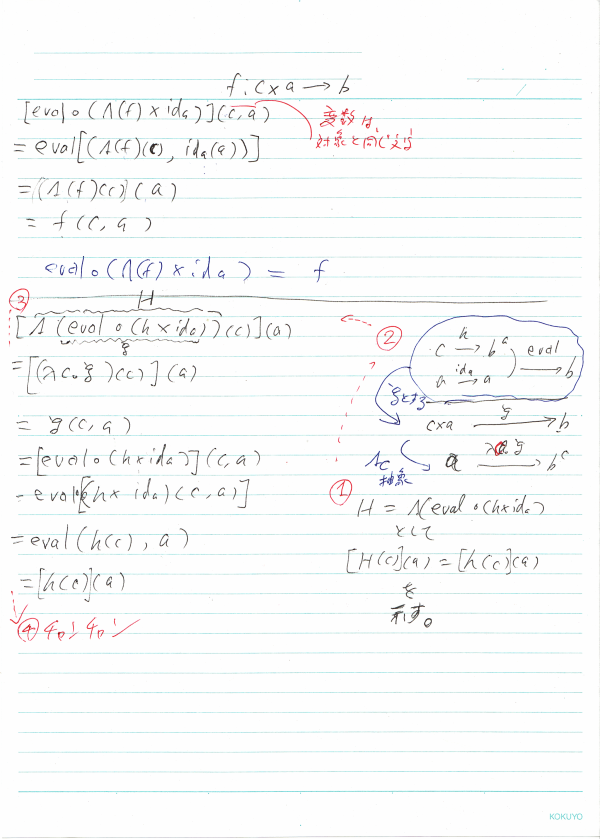 f : c × a → b
[eval ∘ (Λ(f) × id_a)](c, a)
変数は
対象と同じ文字
= eval[(Λ(f)(c), id_a(a))]
= [Λ(f)(c)](a)
= f(c, a)
eval ∘ (Λ(f) × id_a) = f
③ H
[Λ(eval ∘ (h × id_a))(c)](a)
g
= [(λc.g)(c)](a)
= g(c, a)
= [eval ∘ (h × id_a)](c, a)
= eval[(h × id_a)(c, a)]
= eval(h(c), a)
= [h(c)](a)
④
②
h
c → b^a
eval
→ b
id_a
a → a
gとする
c×a g → b
Λc
抽象
①
H = Λ(eval ∘ (h×id_a))
として
[H(c)](a) = [h(c)](a)
を
示す。
KOKUYO